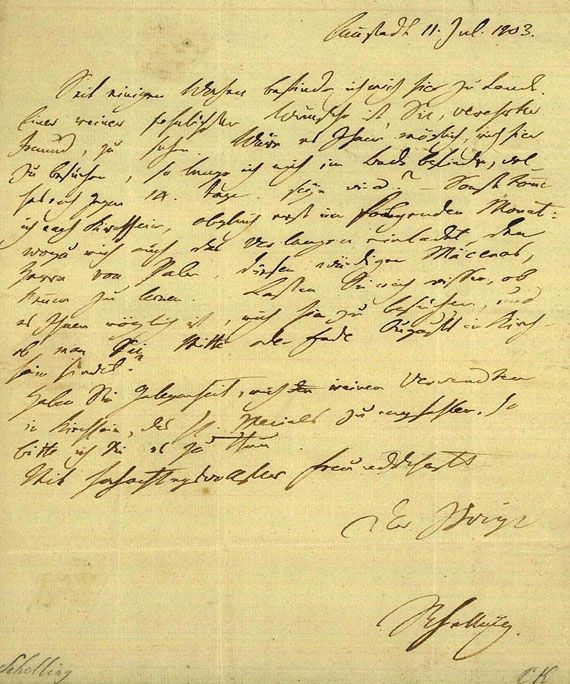 Cannstadt 11. Jul. 1803.
Seit einigen Wochen befinde ich mich hier zu Lande.
Einer meiner sehnlichsten Wünsche ist Sie, verehrter
Freund, zu sehen. Wäre es Ihnen möglich, mich hier
zu besuchen, so lange ich mich im Lande befinde,
noch gegen 14 Tage seyn wird? – Sonst
ich nach obgleich erst im folgenden Monat:
wozu mich auch das Verlangen einladet den
Herrn von diesen würdigen Mäcenas,
kennen zu lernen. Lassen Sie mich wissen, ob
es Ihnen möglich ist, mich hier zu besuchen, und
ob man Sie Mitte oder Ende Augusts in Kirch-
heim findet.
Haben Sie Gelegenheit, mich meinen Verwandten
in Kirchheim, des zu empfehlen, so
bitte ich Sie es zu thun.
Mit hochachtungsvollster Freundschaft
Der Ihrige
Schelling.
Schelling